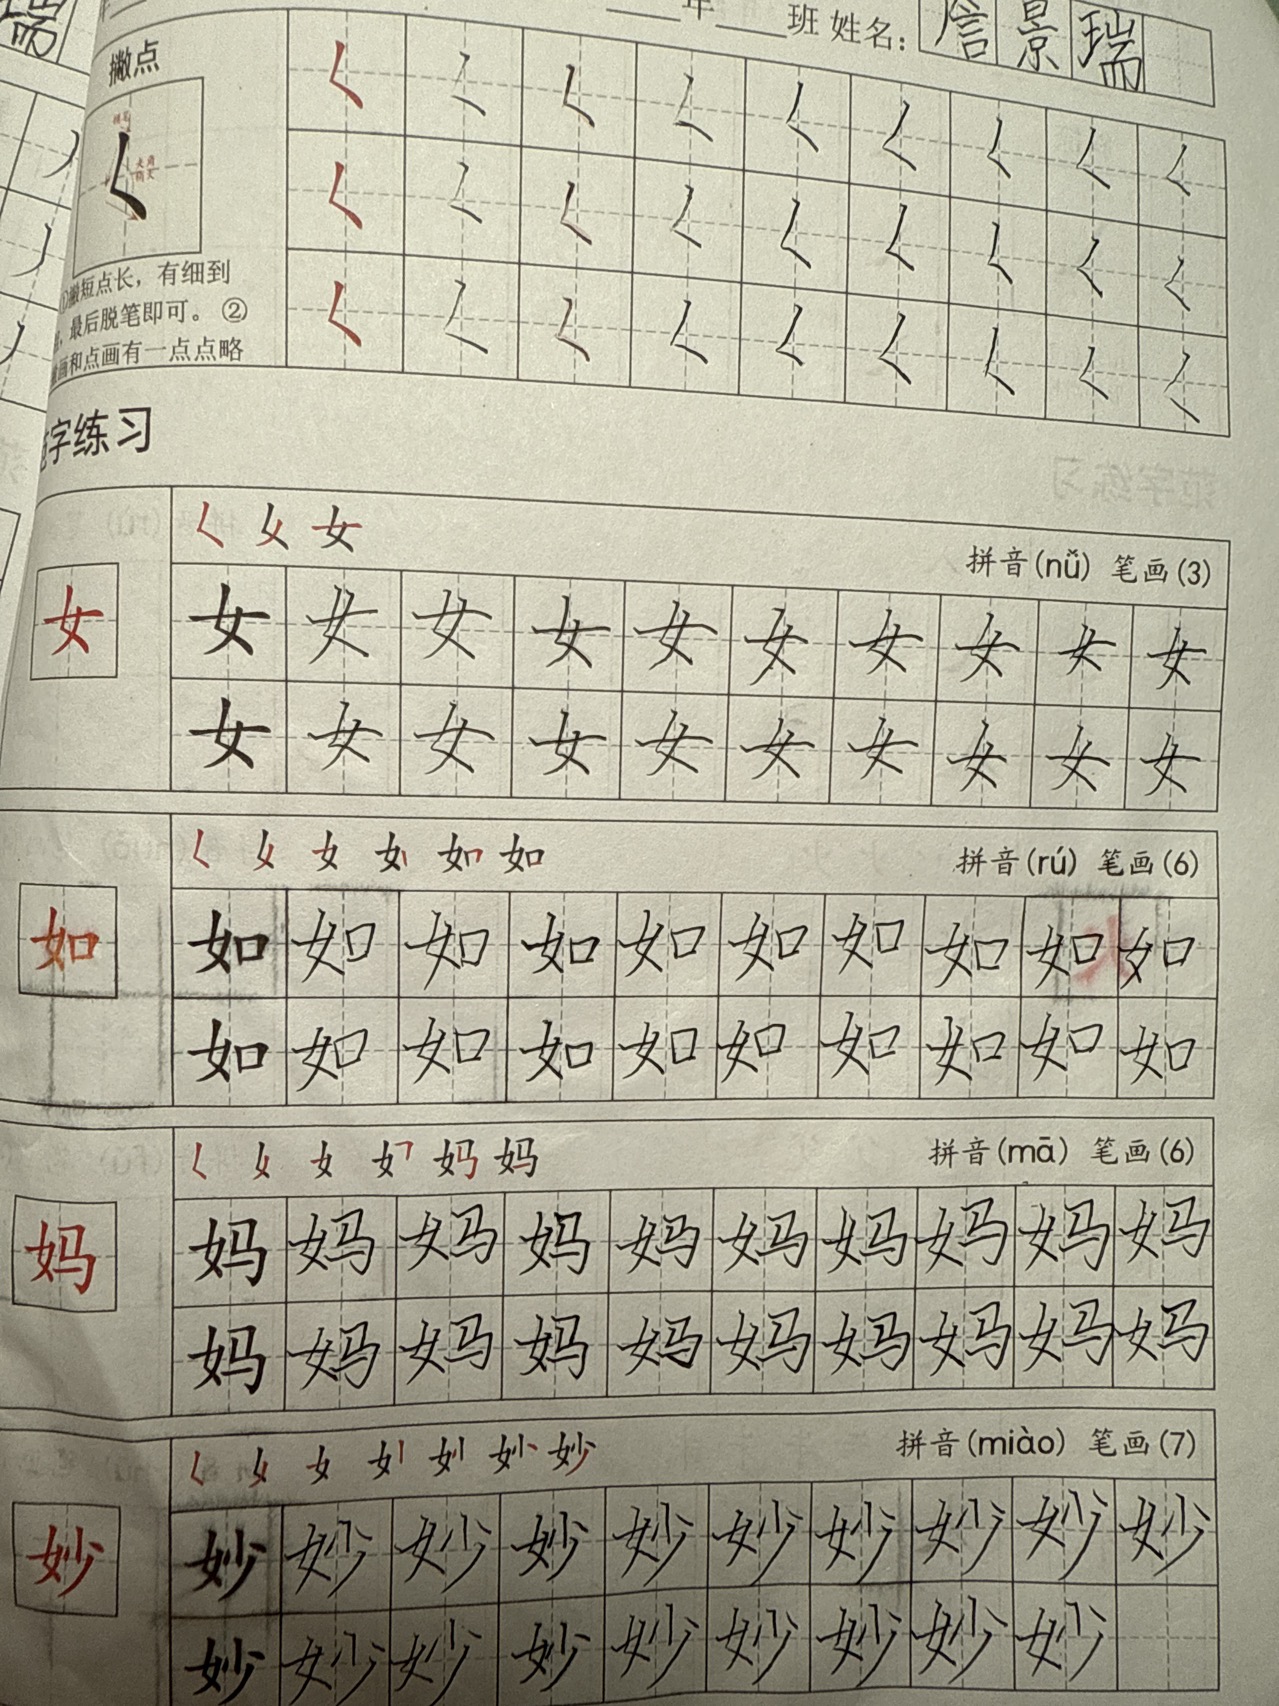 年 班 姓名： 景 瑞
撇点
㇛ ㇛ ㇛ ㇛ ㇛ ㇛ ㇛ ㇛ ㇛
㇛ ㇛ ㇛ ㇛ ㇛ ㇛ ㇛ ㇛ ㇛
㇛ ㇛ ㇛ ㇛ ㇛ ㇛ ㇛ ㇛ ㇛
㇛
撇短点长，有细到
，最后脱笔即可。②
画和点画有一点点略
字练习
女
拼音(nǚ) 笔画(3)
女
女 女 女 女 女 女 女 女 女 女
女 女 女 女 女 女 女 女 女 女
女 如
拼音(rú) 笔画(6)
如
如 如 如 如 如 如 如 如 如 如
如 如 如 如 如 如 如 如 如 如
女 妈
拼音(mā) 笔画(6)
妈
妈 妈 妈 妈 妈 妈 妈 妈 妈 妈
妈 妈 妈 妈 妈 妈 妈 妈 妈 妈
女 妙
拼音(miào) 笔画(7)
妙
妙 妙 妙 妙 妙 妙 妙 妙 妙 妙
妙 妙 妙 妙 妙 妙 妙 妙 妙